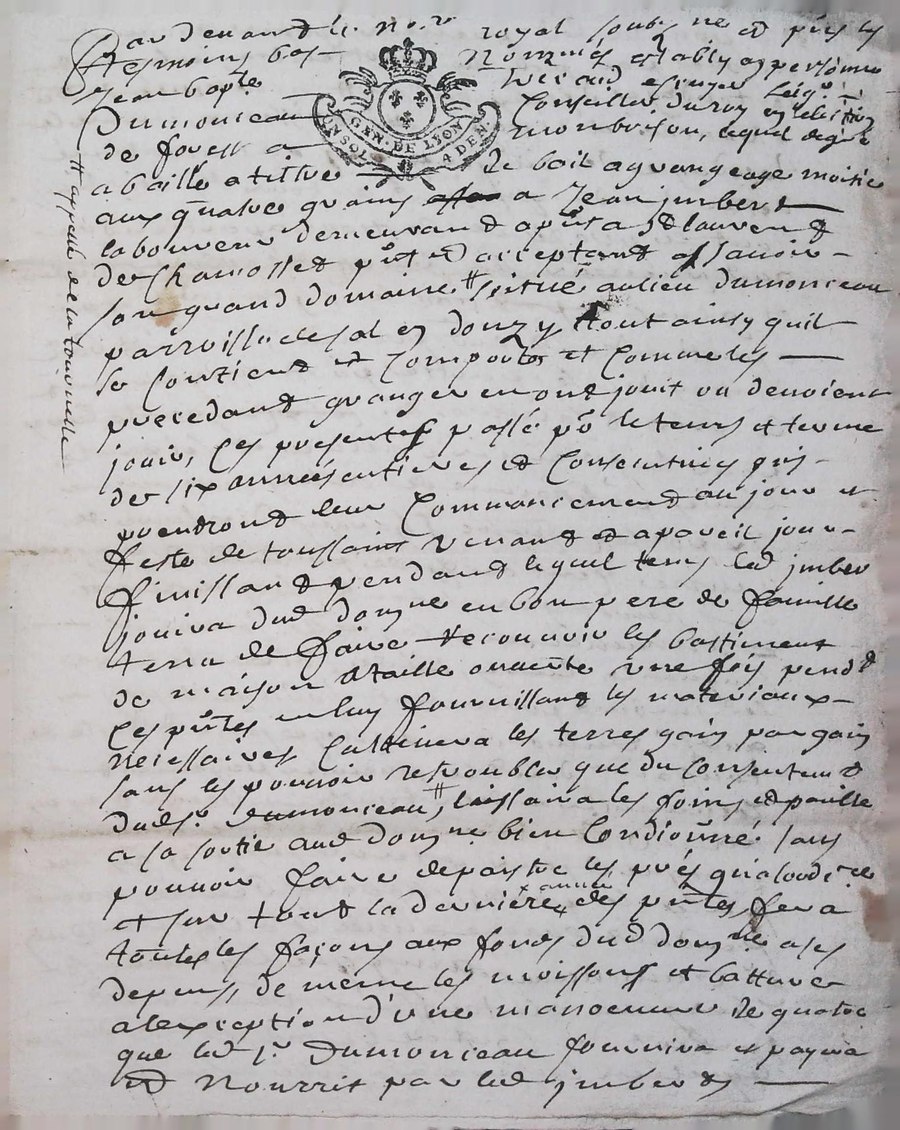 Pardevant le no.re royal soubz.ne et pñs les
tesmoins bas nommés estably en personne
Jean bapte escuyer seig.r
Dumonceau Conseiller du roy en lelection
de forest a monbrison, lequel de gré
GEN. DE LYON
UN SOL 4 DEN.
a baillé a tiltre de bail a grangeage moitie
aux quatre grains a Jean jmbert
laboureur demeurant a pñt a St laurent
de Chamosset pñt et acceptant assavoir
son grand domaine # scitué au lieu dumonceau
# appellé de la tournelle
parroisse de salt en donzy tout ainsy quil
se Contient et Comporte et Comme les
precedant granger en ont jouit ou devoient
jouir, Ces presentes passé po.r le tems et terme
de six années entieres et Consecutives qui
prendront leur Commancement au jour et
feste de toussaint venant et a pareil jour
finissant pendant lequel tems led jmbert
jouira dud dom.ne en bon pere de famille
fera de faire recouvrir les bastiment
de maison a taille ouverte une fois pend.t
Ces pñtes en luy fournissant les materiaux
necessaires Cultivera les terres gain par gain
sans les pouvoir retroubler que du Consentem.t
dud s.r dumonceau, # laissaira les foins et paille
a sa sortie aud dom.ne bien Conditionné sans
pouvoir faire depaistre les prés
et sur tout la derniere année des pñtes fera
toutes les façons aux fonds dud dom.ne a ses
depens, de meme les moissons et batture
a lexception d'une manoeuvre de quatre
que led s.r Dumonceau fournira et payera
et nourrit par led jmbert